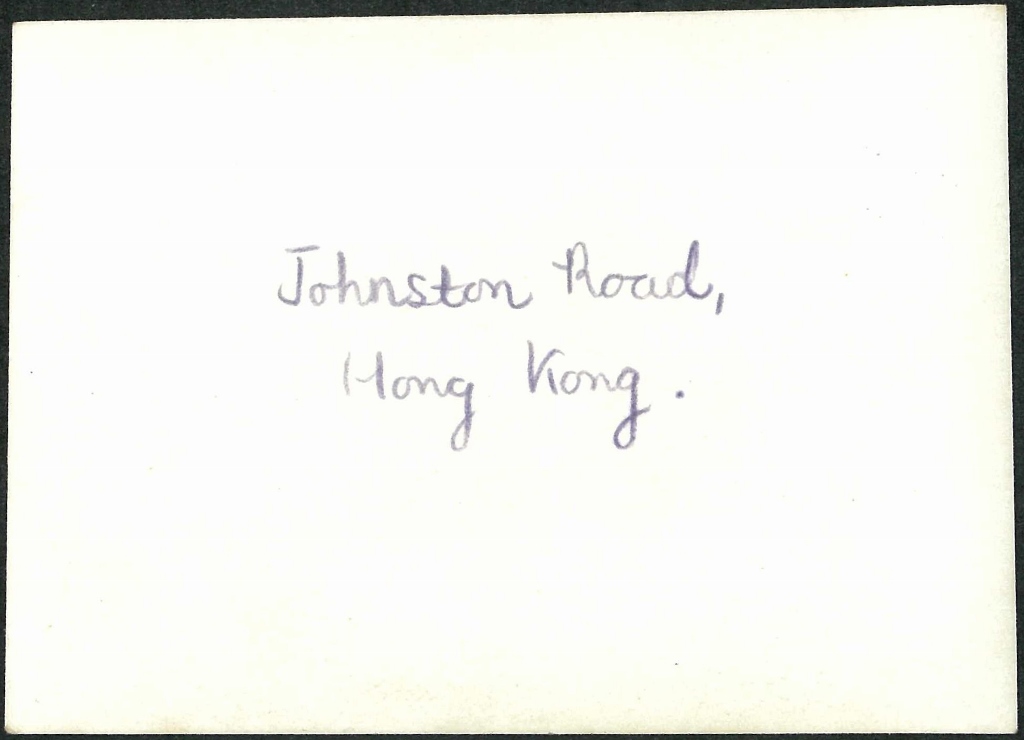 Johnston Road,
Hong Kong.